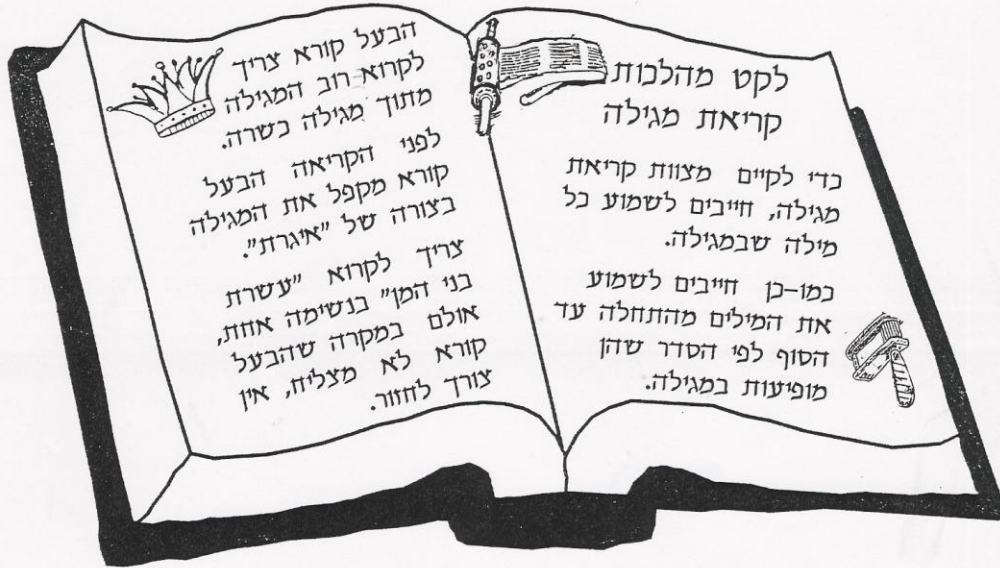 לקט מהלכות
קריאת מגילה
כדי לקיים מצוות קריאת
מגילה, חייבים לשמוע כל
מילה שבמגילה.
כמו-כן חייבים לשמוע
את המילים מהתחלה עד
הסוף לפי הסדר שהן
מופיעות במגילה.
הבעל קורא צריך
לקרוא רוב המגילה
מתוך מגילה כשרה.
לפני הקריאה הבעל
קורא מקפל את המגילה
בצורה של "איגרת".
צריך לקרוא "עשרת
בני המן" בנשימה אחת,
אולם במקרה שהבעל
קורא לא מצליח, אין
צורך לחזור.